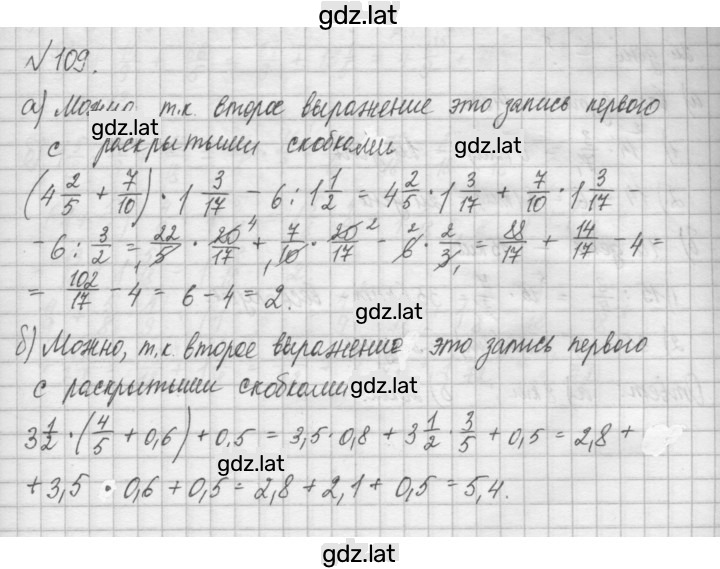 gdz.lat
№109.
а) Можно, т.к. второе выражение это запись первого
gdz.lat
gdz.lat
с раскрытыми скобками
(4 2/5 + 7/10) · 1 3/17 - 6 : 1 1/2 = 4 2/5 · 1 3/17 + 7/10 · 1 3/17 -
- 6 : 3/2 = 22/5 · 20/17 + 7/10 · 20/17 - 6 · 2/3 = 88/17 + 14/17 - 4 =
= 102/17 - 4 = 6 - 4 = 2.
gdz.lat
б) Можно, т.к. второе выражение это запись первого
с раскрытыми скобками
gdz.lat
3 1/2 · (4/5 + 0,6) + 0,5 = 3,5 · 0,8 + 3 1/2 · 3/5 + 0,5 = 2,8 +
gdz.lat
+ 3,5 · 0,6 + 0,5 = 2,8 + 2,1 + 0,5 = 5,4.
gdz.lat